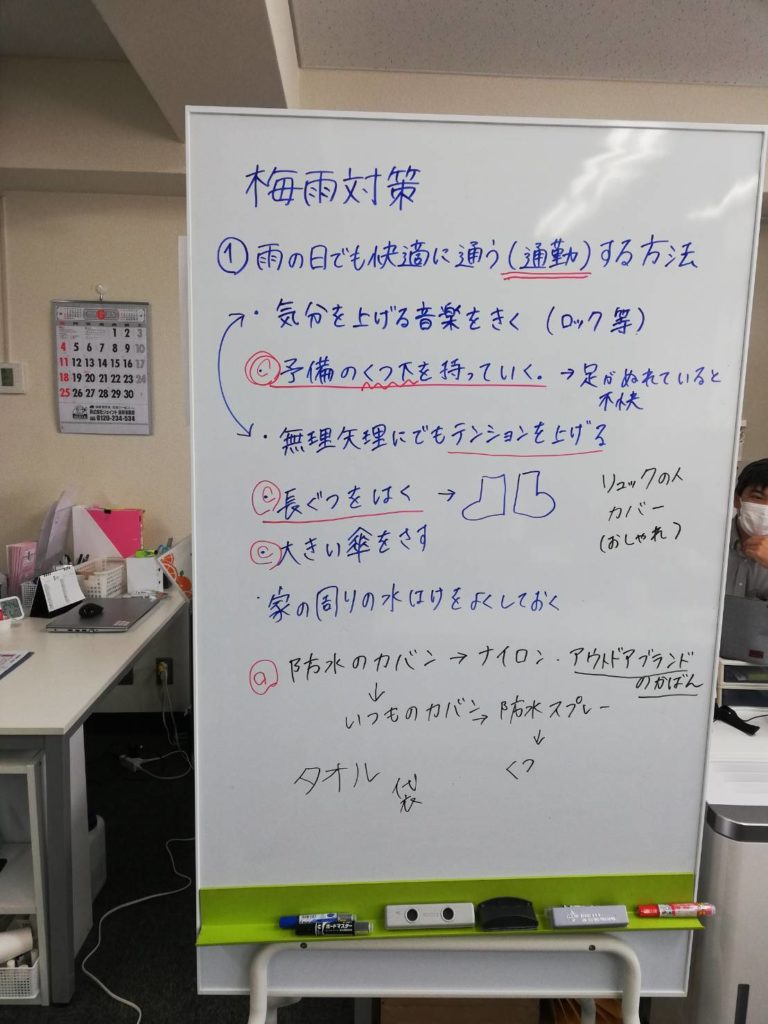 梅雨対策
① 雨の日でも快適に通う(通勤)する方法
・気分を上げる音楽をきく (ロック等)
予備のくつ下を持っていく. → 足がぬれていると
不快
・無理矢理にでもテンションを上げる
長ぐつをはく →
リュックの人
カバー
(おしゃれ)
大きい傘をさす
・家の周りの水はけをよくしておく
ⓐ 防水のカバン → ナイロン・アウトドアブランド
のかばん
↓
いつものカバン → 防水スプレー
↓
タオル 袋 くつ
6
1 2 3
4 5 6 7 8 9 10
11 12 13 14 15 16 17
18 19 20 21 22 23 24
25 26 27 28 29 30
0120-234-534
ボードマスター